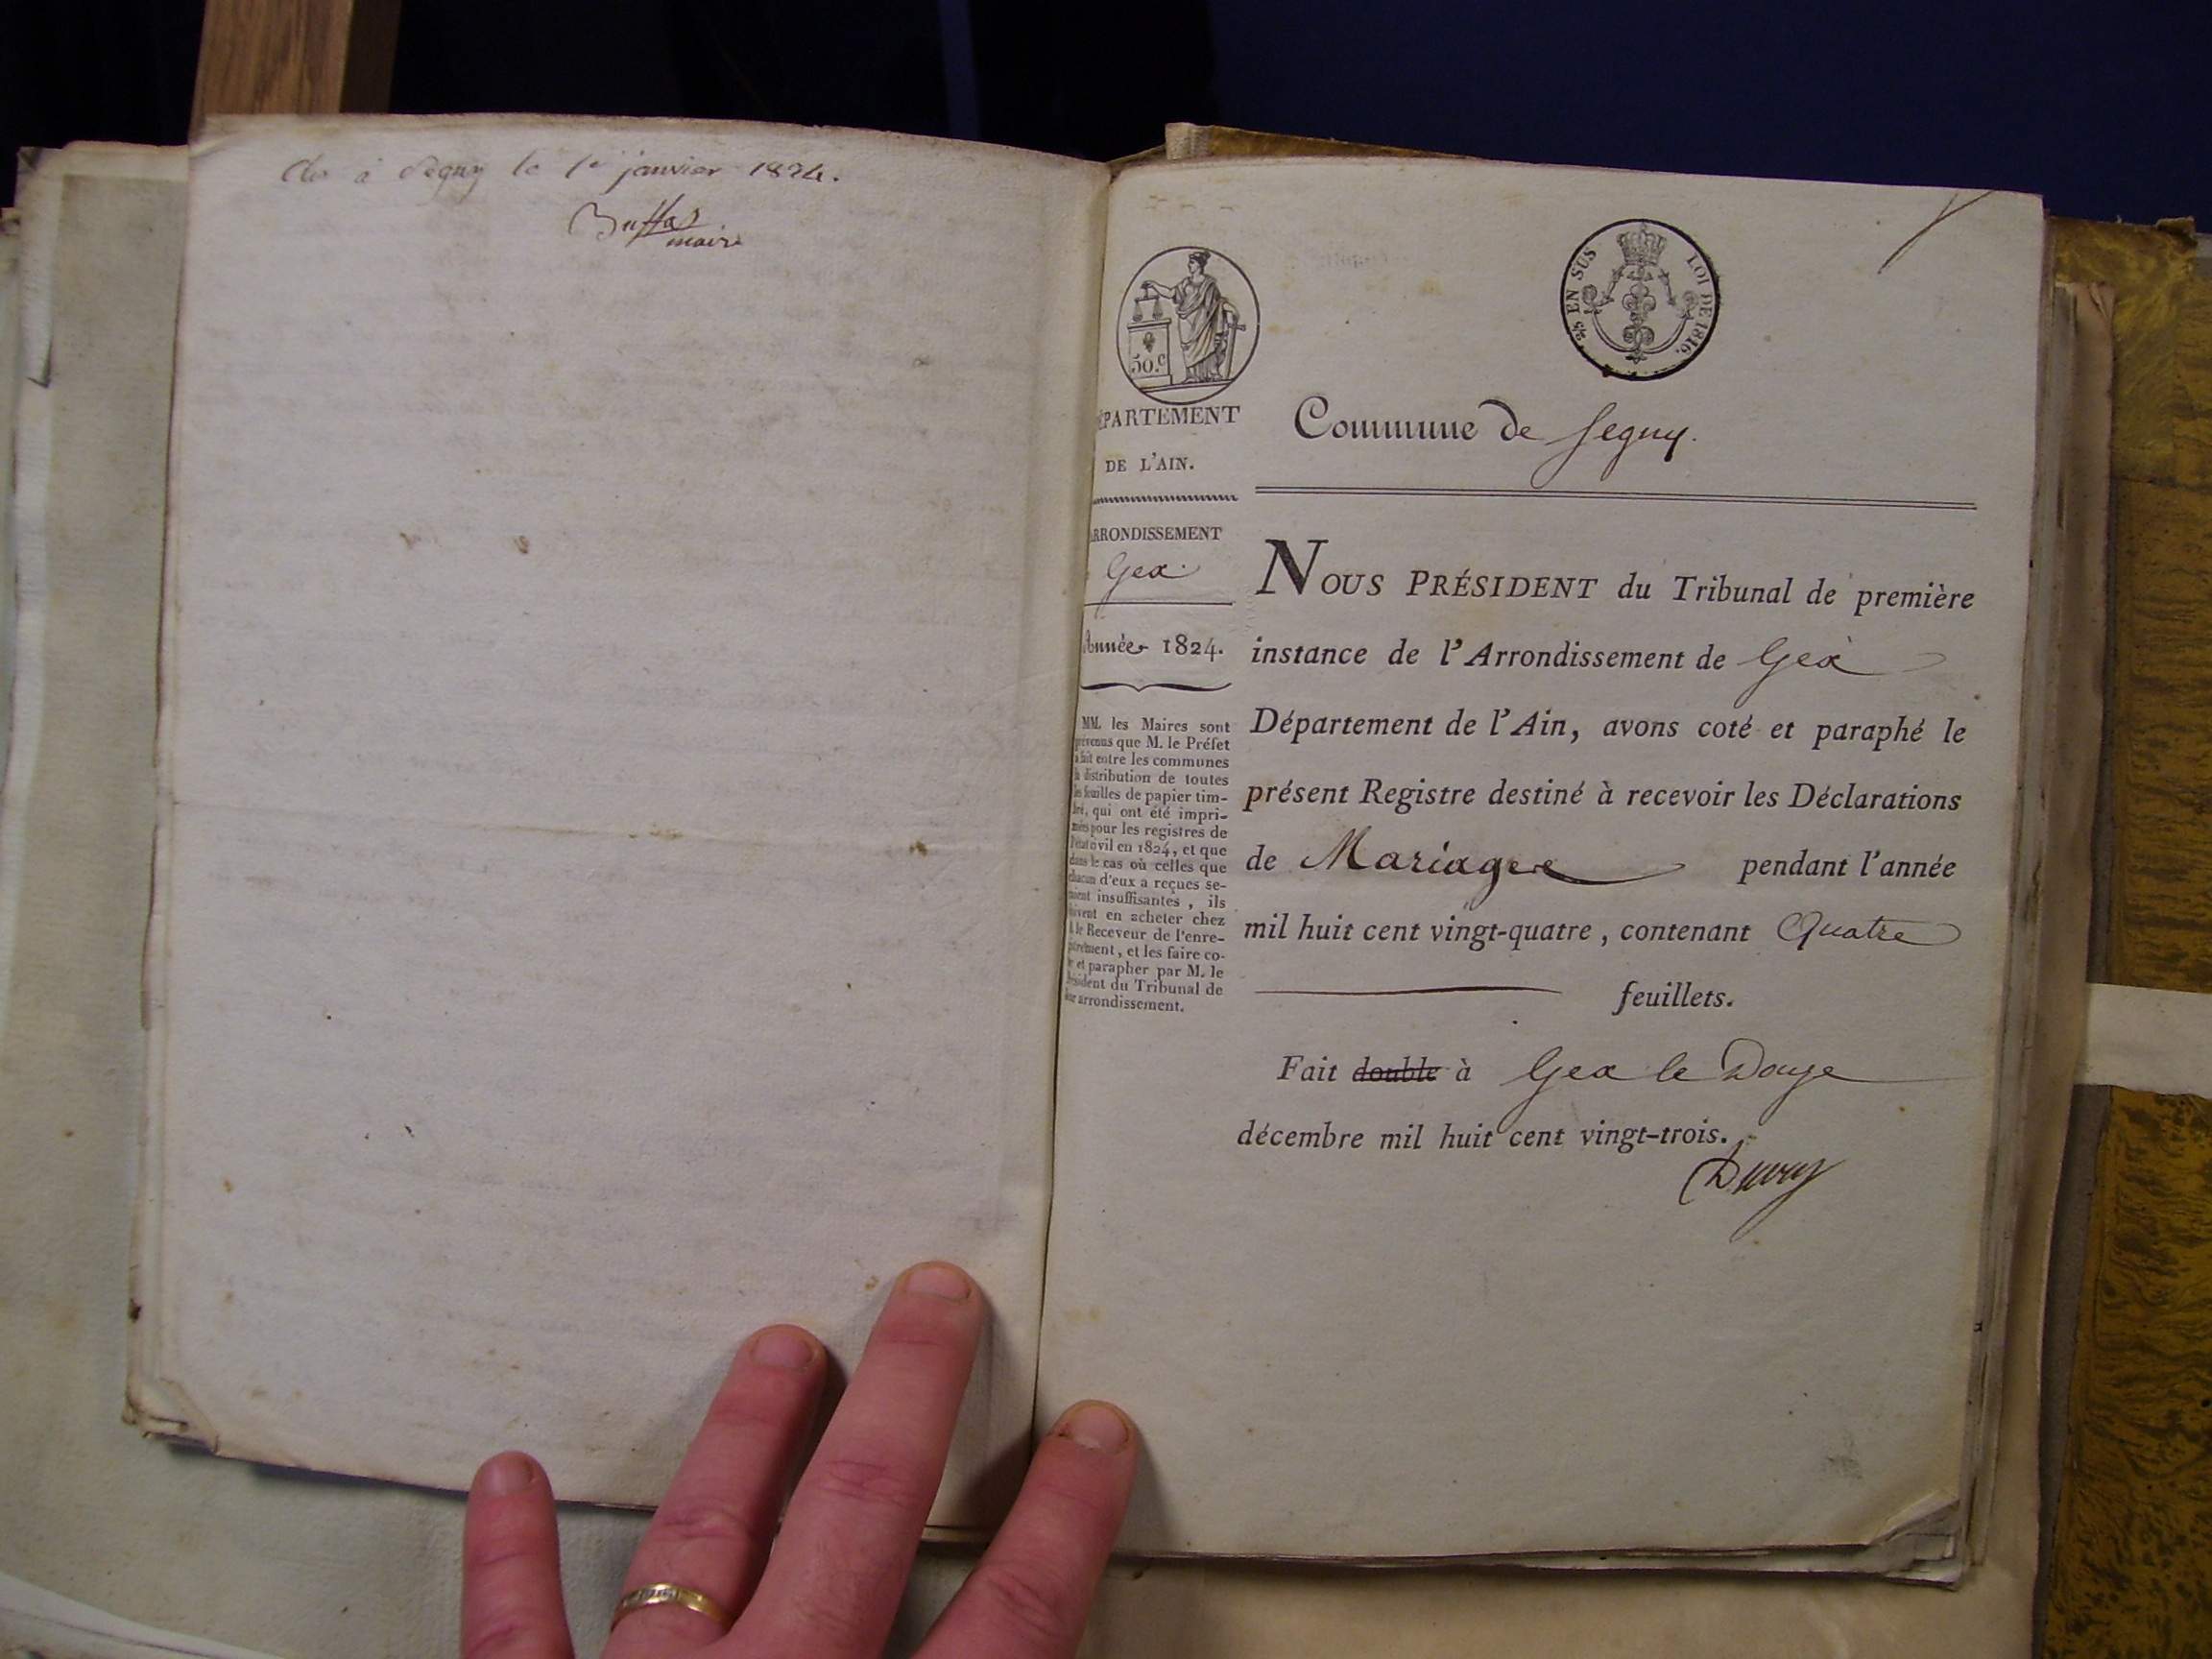 Clos à Segny le 1er janvier 1824.
maire
50.c
EN SUS
LOI DE 1816.
DÉPARTEMENT
DE L'AIN.
ARRONDISSEMENT
Gex
Année 1824.
MM. les Maires sont
prévenus que M. le Préfet
a fait entre les communes
la distribution de toutes
les feuilles de papier tim-
bré, qui ont été impri-
mées pour les registres de
l'état civil en 1824, et que
dans le cas où celles que
chacun d'eux a reçues se-
raient insuffisantes, ils
doivent en acheter chez
M. le Receveur de l'enre-
gistrement, et les faire co-
ter et parapher par M. le
Président du Tribunal de
leur arrondissement.
Commune de Segny.
NOUS PRÉSIDENT du Tribunal de première
instance de l'Arrondissement de Gex
Département de l'Ain, avons coté et paraphé le
présent Registre destiné à recevoir les Déclarations
de Mariages pendant l'année
mil huit cent vingt-quatre, contenant Quatre
feuillets.
Fait double à Gex le Douze
décembre mil huit cent vingt-trois.